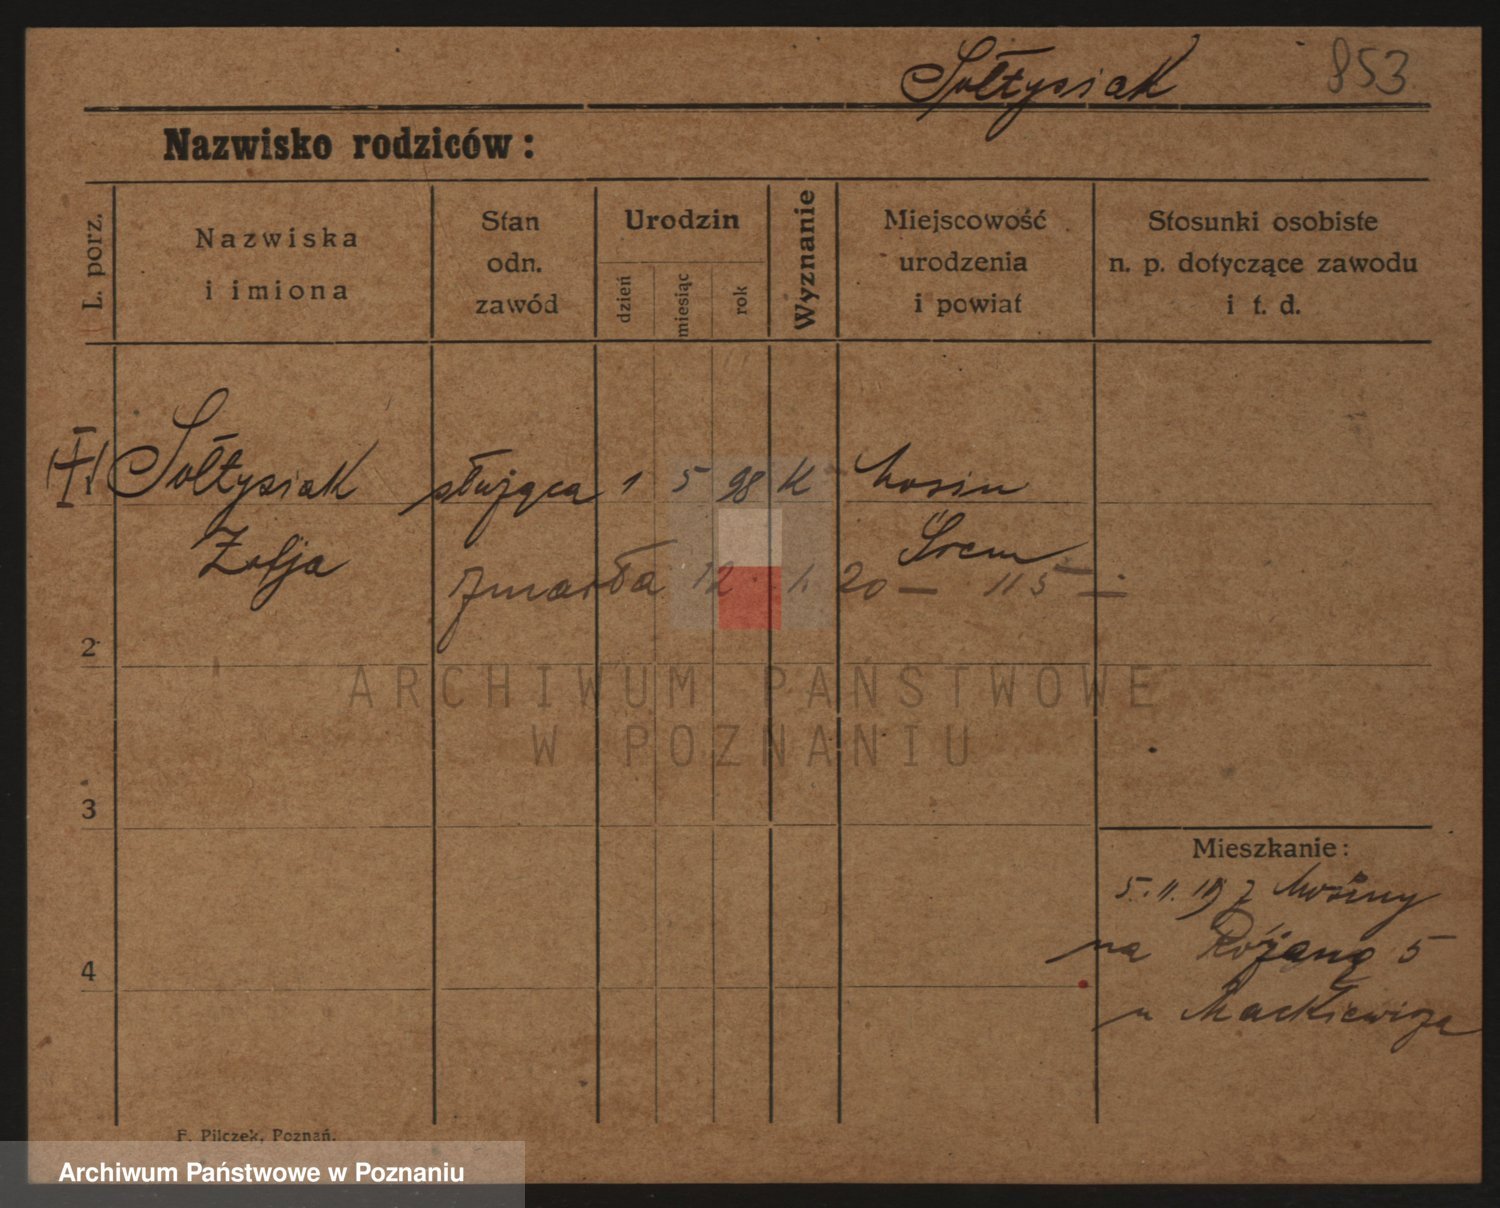 Sołtysiak 853
Nazwisko rodziców:
L. porz.
Nazwiska
i imiona
Stan
odn.
zawód
Urodzin
dzień
miesiąc
rok
Wyznanie
Miejscowość
urodzenia
i powiat
Stosunki osobiste
n. p. dotyczące zawodu
i t. d.
1 Sołtysiak służąca 1 5 98 K
Zofja Śrem
zmarła 12 1. 20 — 115
2
ARCHIWUM PAŃSTWOWE
W POZNANIU
3
Mieszkanie:
5. 11. 19 z Mosiny
na Różaną 5
4
u Mackiewicza
F. Pilczek, Poznań.
Archiwum Państwowe w Poznaniu